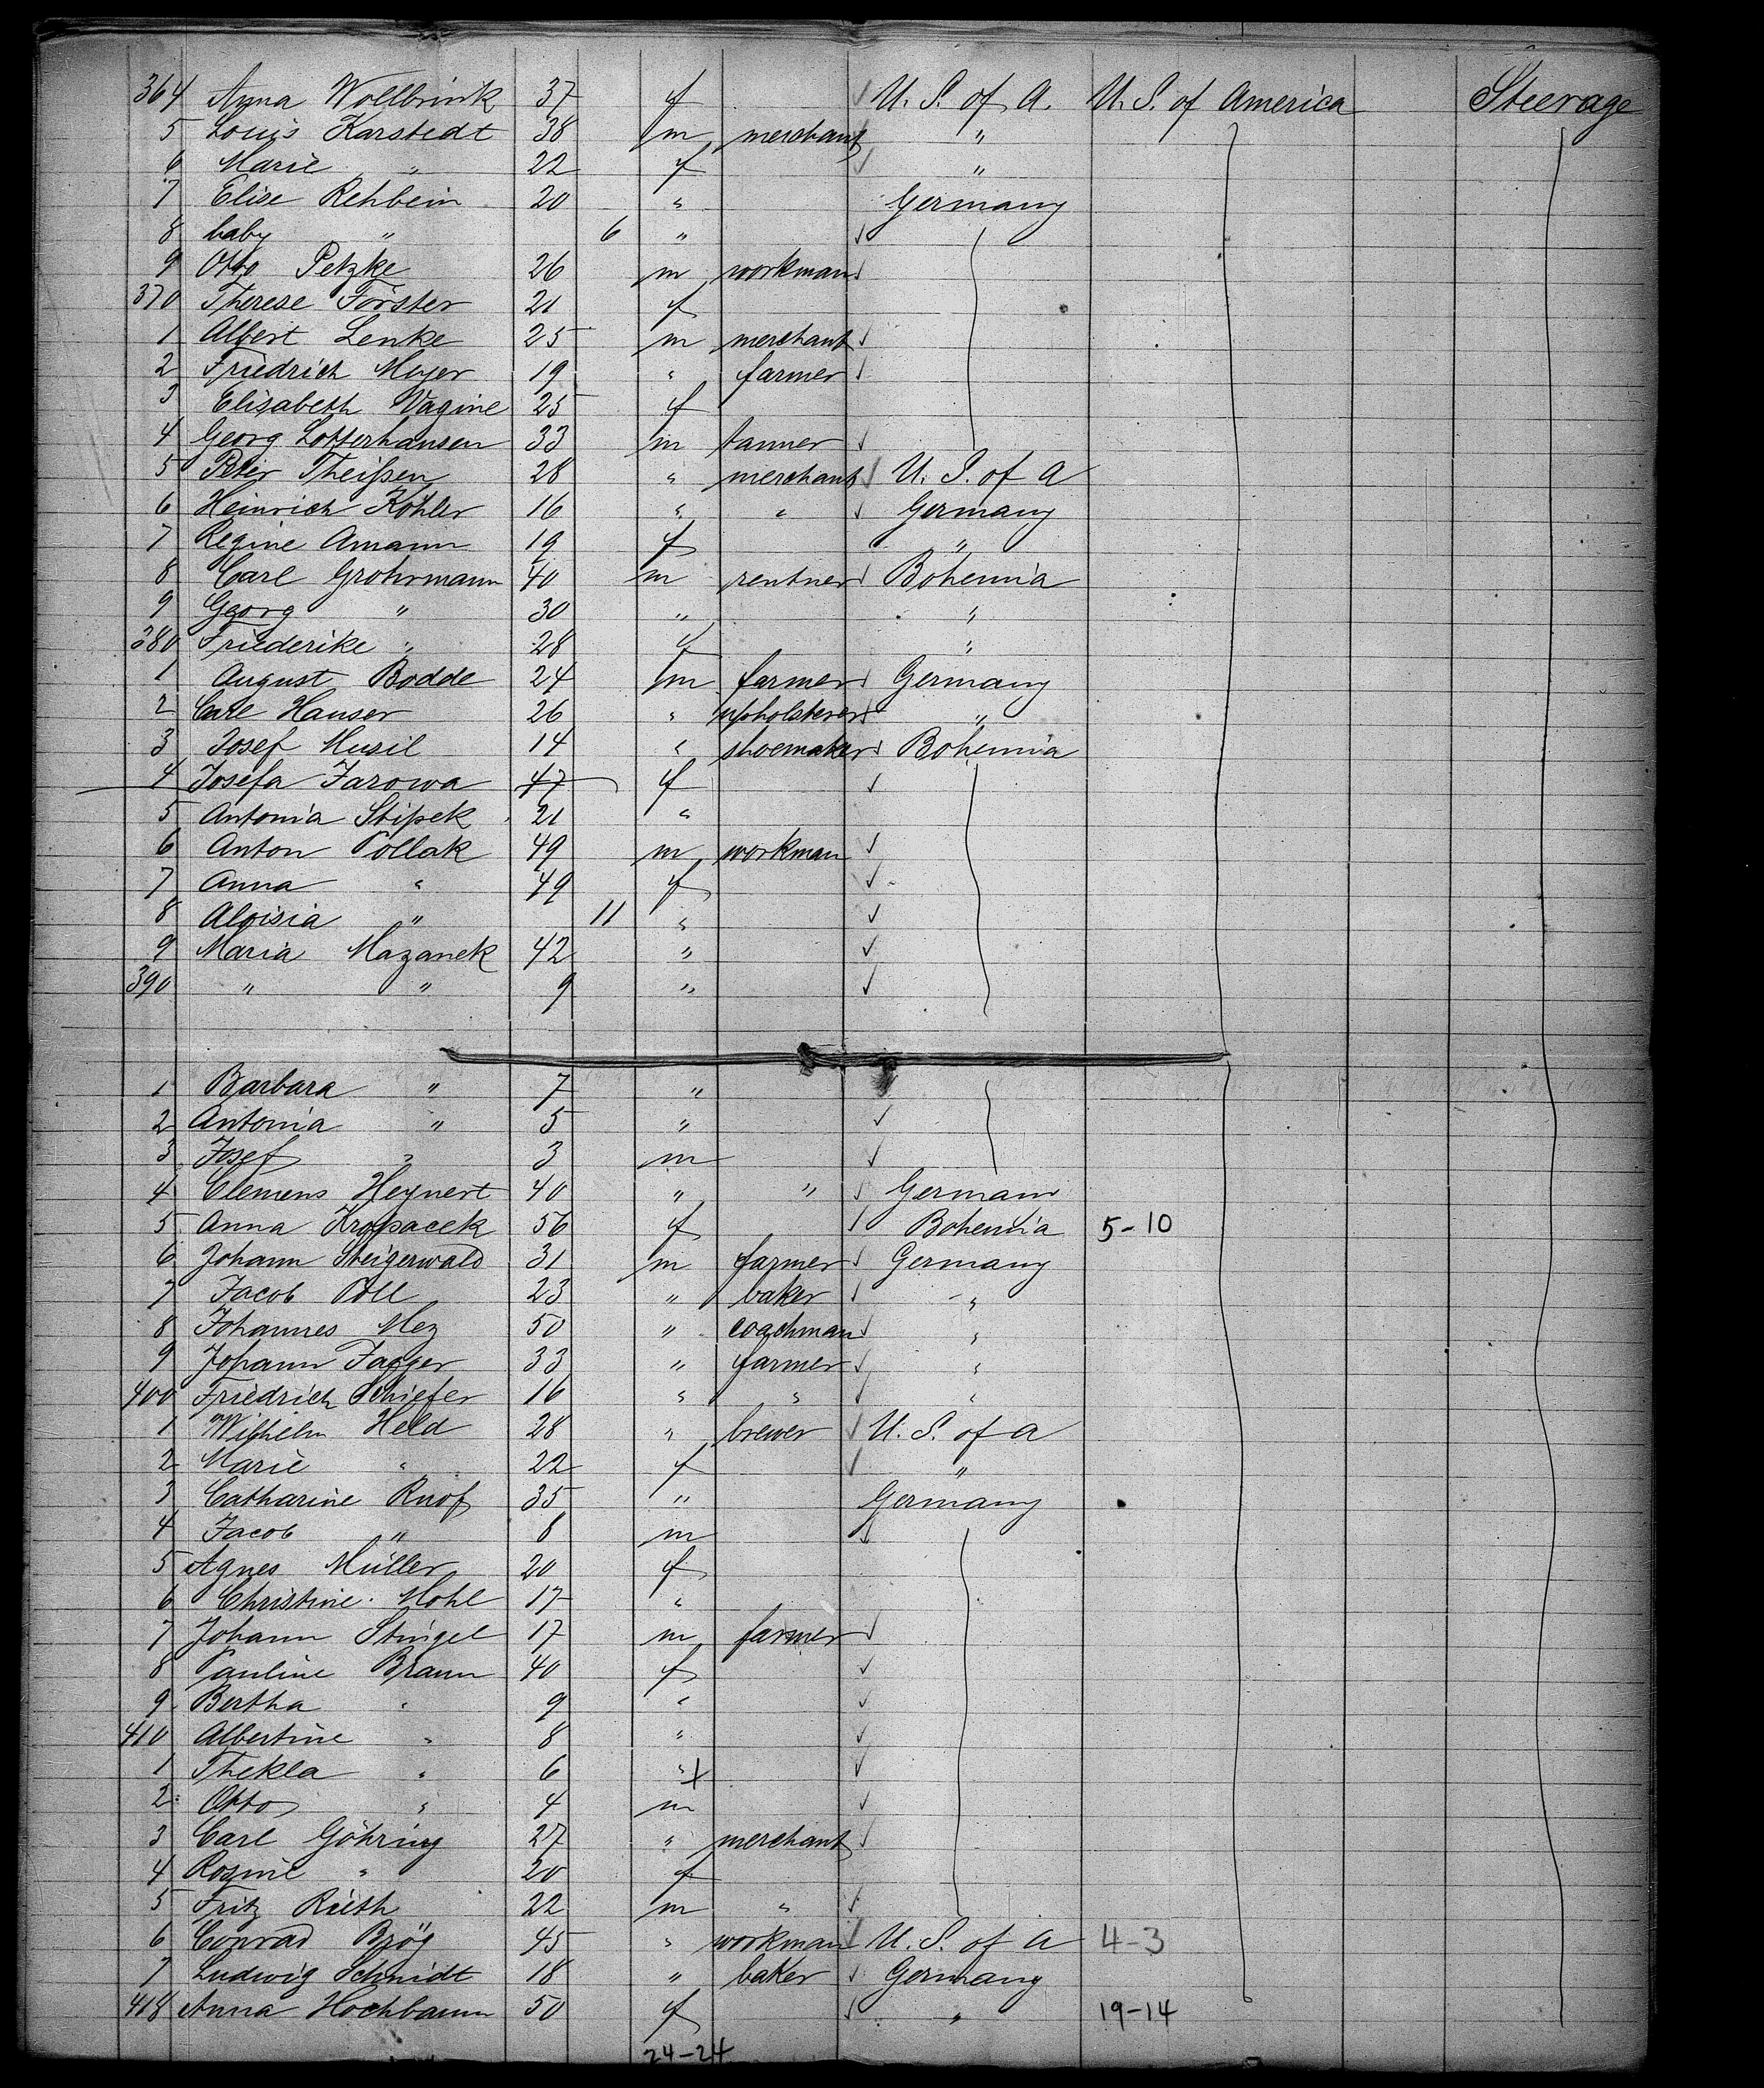 364 Anna Wollbrink 37 f U. S. of A. U. S. of America Steerage
5 Louis Karstedt 38 m merchant "
6 Marie " 22 f "
7 Elise Rehbein 20 " Germany
8 baby " 6 "
9 Otto Petzke 26 m workman
370 Therese Förster 21 f
1 Albert Lenke 25 m merchant
2 Friedrich Meyer 19 " farmer
3 Elisabeth Wagine 25 f
4 Georg Lotterhausen 33 m tanner
5 Peter Theißen 28 " merchant U. S. of A
6 Heinrich Köhler 16 " " Germany
7 Regine Amann 19 f "
8 Carl Grohrmann 40 m rentner Bohemia
9 Georg " 30 " "
380 Friederike " 28 f "
1 August Bodde 24 m farmer Germany
2 Carl Hauser 26 " upholsterer "
3 Josef Musil 14 " shoemaker Bohemia
4 Josefa Jarowa 47 f
5 Antonia Stißek 21 "
6 Anton Pollak 49 m workman
7 Anna " 49 f
8 Aloisia " 11 "
9 Maria Mazanek 42 "
390 " " 9 "
1 Barbara " 7 "
2 Antonia " 5 "
3 Josef " 3 m
4 Clemens Heynert 40 " " Germany
5 Anna Kropacek 56 f Bohemia 5-10
6 Johann Steigerwald 31 m farmer Germany
7 Jacob Öll 23 " baker "
8 Johannes Mez 50 " coachman "
9 Johann Jagger 33 " farmer "
400 Friedrich Schiefer 16 " " "
1 Wilhelm Held 28 " brewer U. S. of A
2 Marie " 22 f "
3 Catharine Ruof 35 " Germany
4 Jacob " 8 m
5 Agnes Müller 20 f
6 Christine Mohl 17 "
7 Johann Stingel 17 m farmer
8 Pauline Braun 40 f
9 Bertha " 9 "
410 Albertine " 8 "
1 Thekla " 6 "
2 Otto " 4 m
3 Carl Göhring 27 " merchant
4 Rosine " 20 f
5 Fritz Rieth 22 m "
6 Conrad 45 " workman U. S. of A 4-3
7 Ludwig Schmidt 18 " baker Germany
418 Anna Hochbaum 50 f " 19-14
24-24